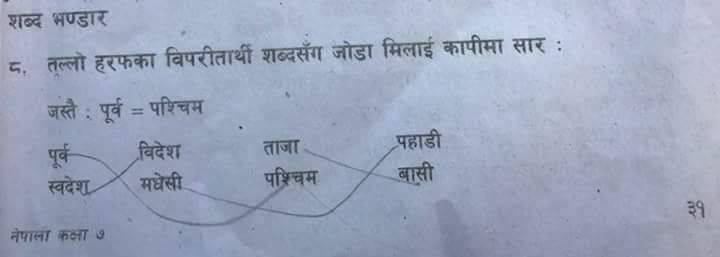 शब्द भण्डार
८. तल्लो हरफका विपरीतार्थी शब्दसँग जोडा मिलाई कापीमा सार :
जस्तै : पूर्व = पश्चिम
पूर्व विदेश ताजा पहाडी
स्वदेश मधेसी पश्चिम बासी
३१
नेपाली कक्षा ७